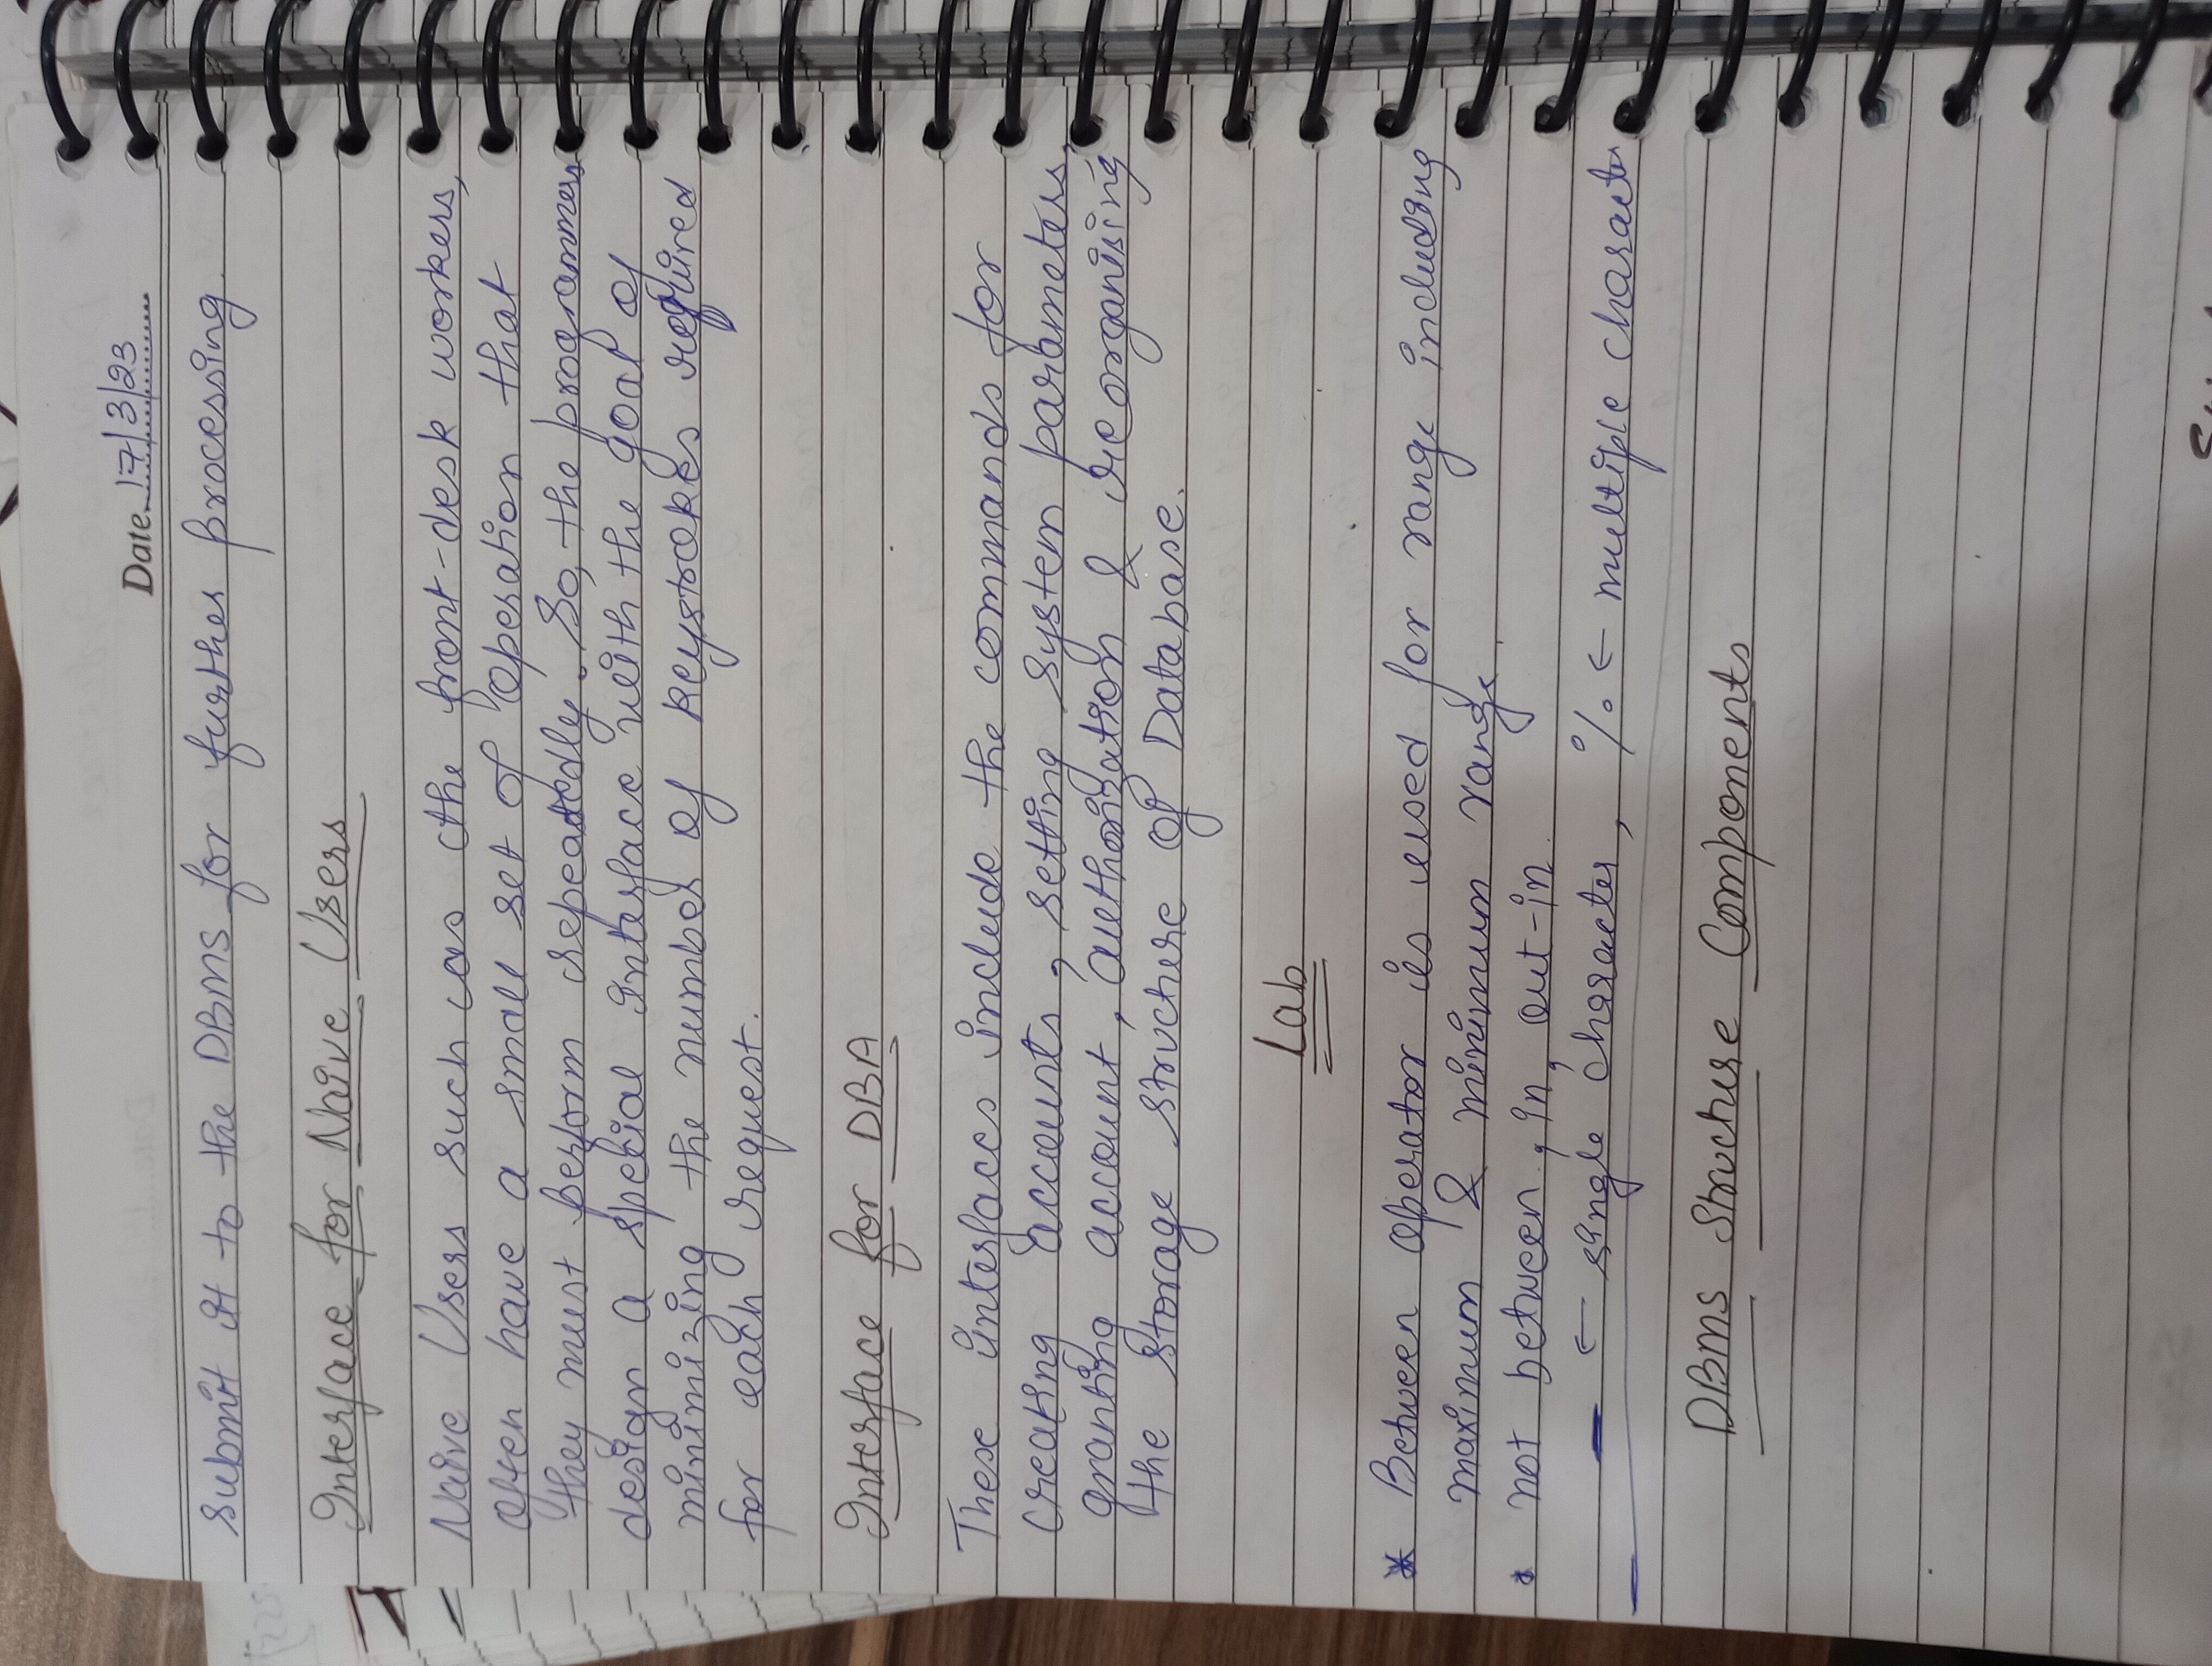 Date 17/3/23
submit it to the DBMS for further processing.
Interface for Naive Users
Naive Users such as the front-desk workers,
often have a small set of operation that
they must perform repeatedly. So, the programmers
design a special interface with the goal of
minimizing the number of keystrokes required
for each request.
Interface for DBA
These interfaces include the commands for
creating accounts, setting system parameters,
granting account, authorization & reorganising
the storage structure of Database.
Lab
* Between operator is used for range including
maximum & minimum range.
* not between, in, out-in.
_ ← single character, % ← multiple character
DBMS Structure Components